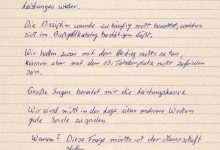 Leistungen wider.
Die Disziplin wurde zu häufig nicht bewahrt, welches
sich im Bußgeldkatalog bestätigen läßt.
Wir haben zwar mit dem Abstieg nichts zu tun,
können aber mit dem 13. Tabellenplatz nicht zufrieden
sein.
Große Sorgen bereitet mir die Leistungskurve
Wir sind nicht in der Lage über mehrere Wochen
gute Spiele zu zeigen
Warum? Diese Frage möchte ich der Mannschaft